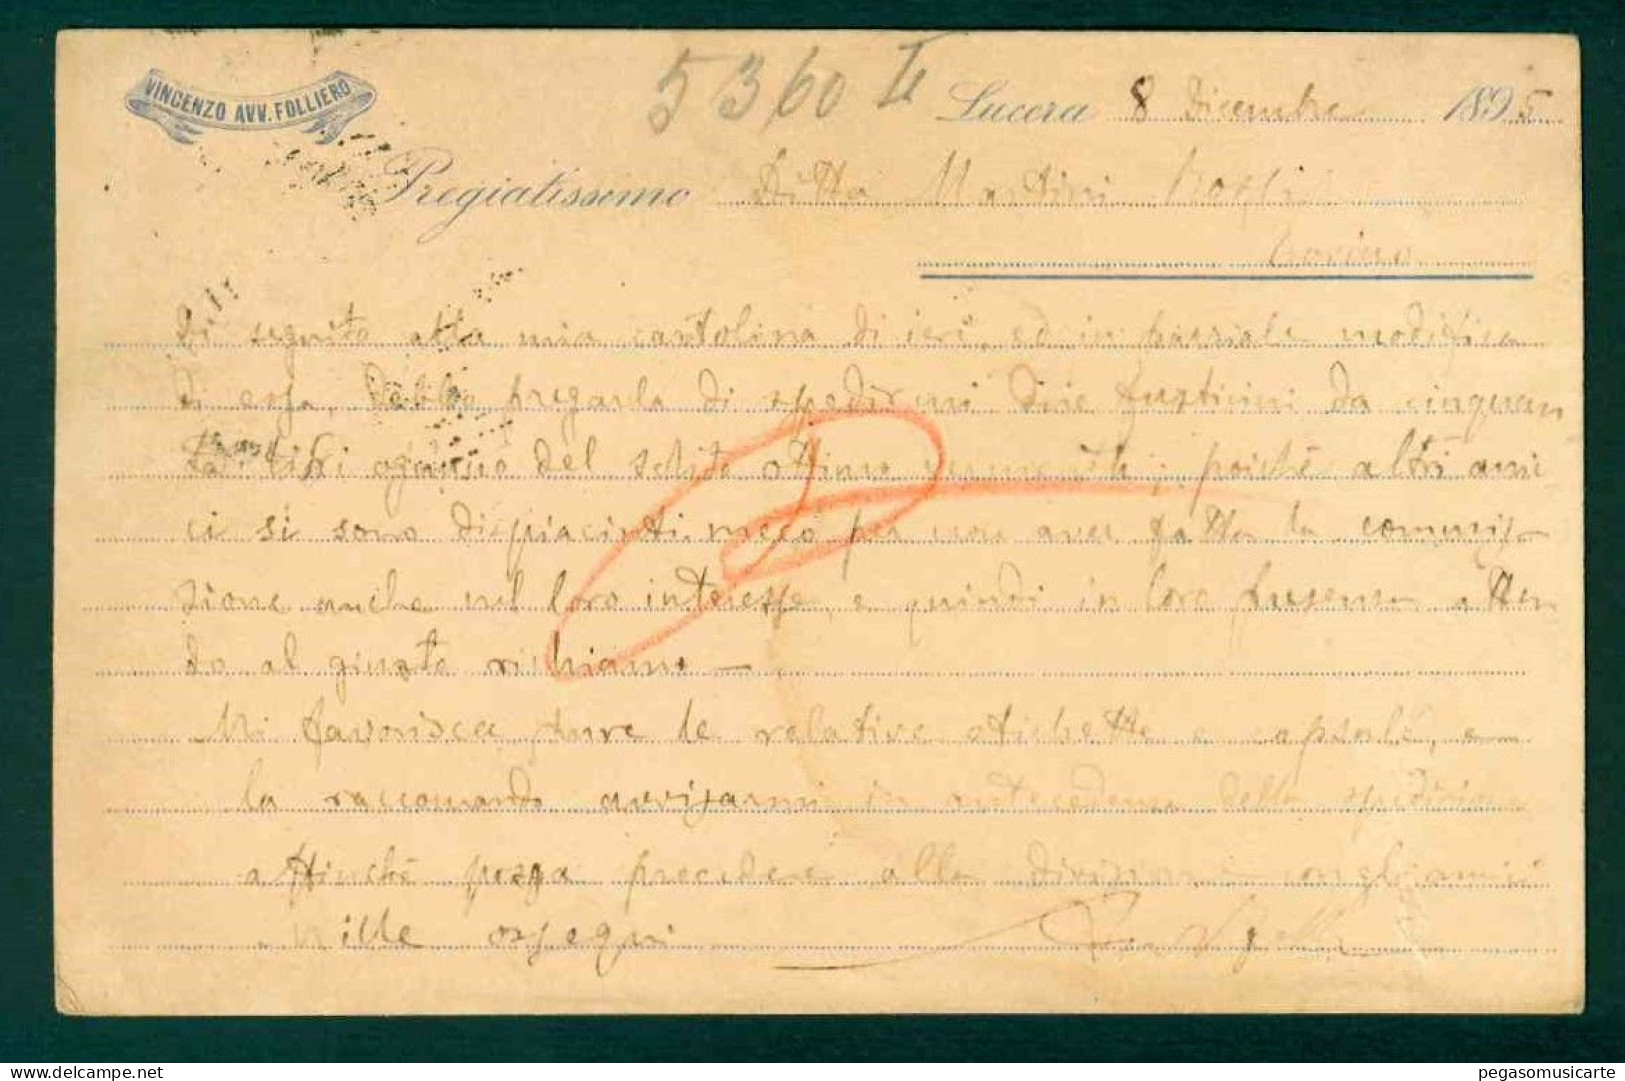 VINCENZO AVV. FOLLIERO
5360 II
Lucera 8 Dicembre 1895
Pregiatissimo Ditta Martini Rossi
Torino
In seguito alla mia cartolina di ieri, ed in parziale modifica
di essa, debbo pregarla di spedirmi due fusticini da cinquan
ta litri ognuno del solito ottimo vermouth; poichè altri ami
ci si sono dispiaciuti meco per non aver fatta la commis
sione anche nel loro interesse, e quindi in loro presenza atten
do al giusto richiamo —
Mi favorisca pure le relative etichette e capsole, e
la raccomando avvisarmi in antecedenza della spedizione
affinchè possa precedere alla divisione cogli amici
Mille ossequi
pegasomusicarte